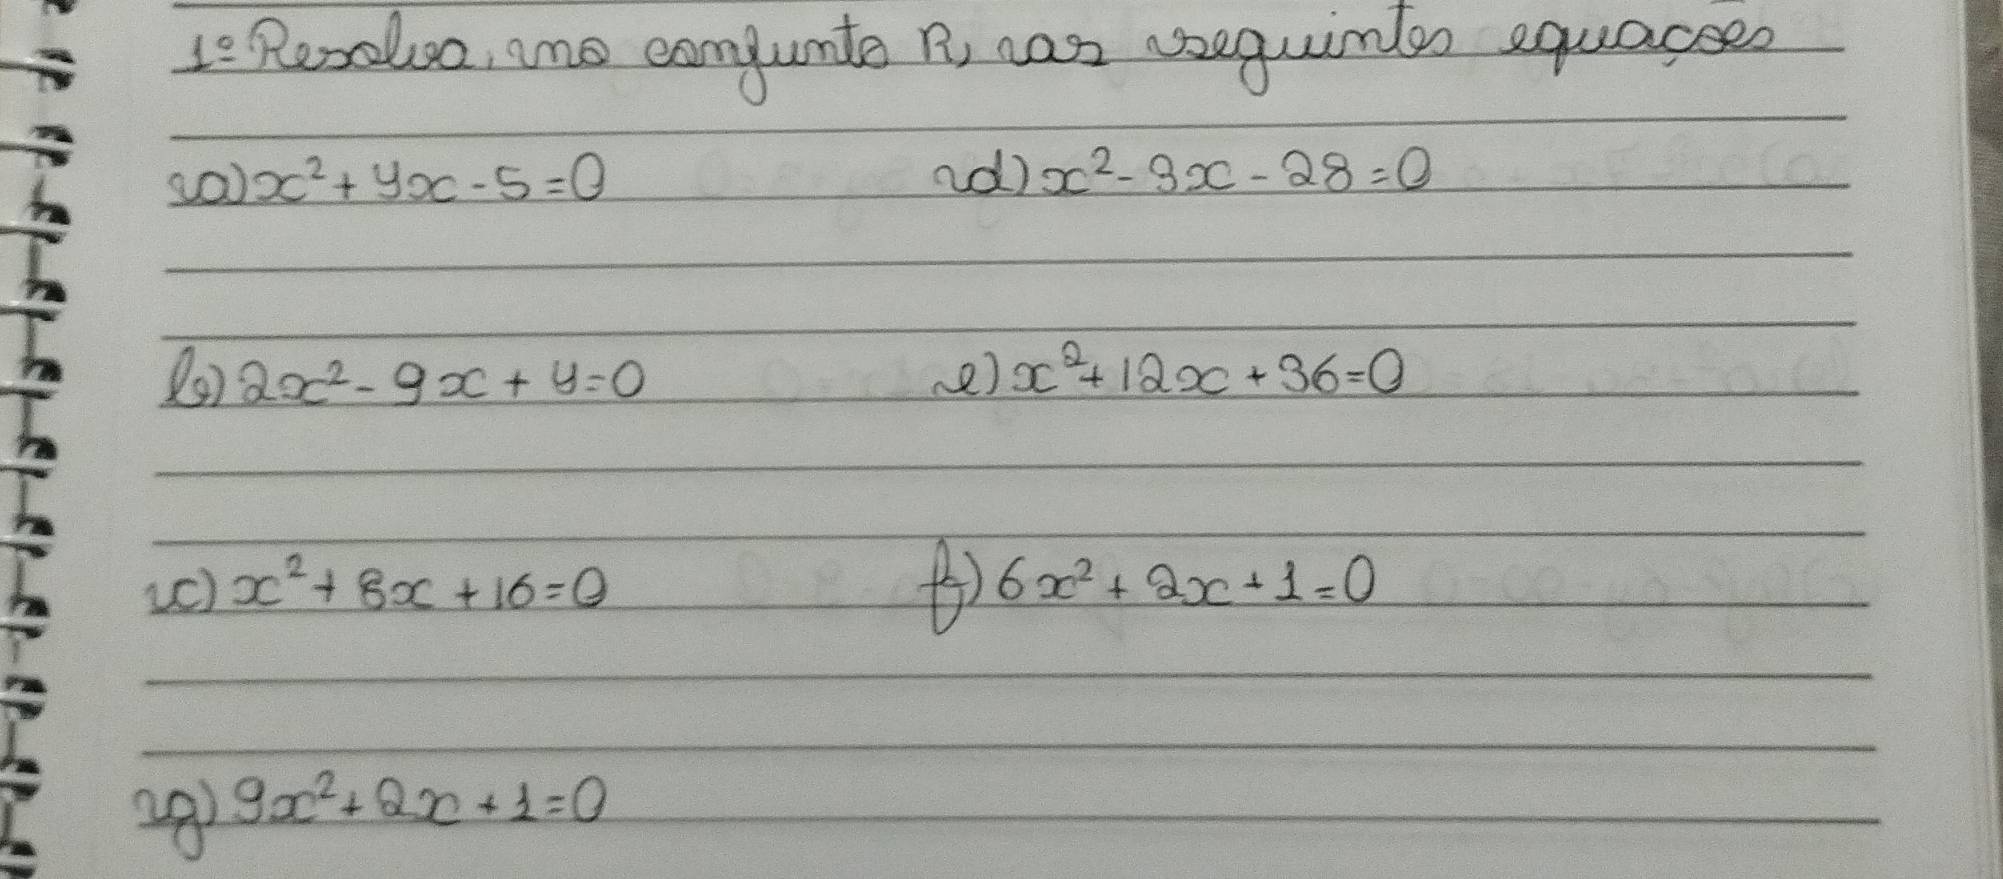 1º Resolva, no conjunto R, as seguintes equações
a) x² + 4x - 5 = 0
d) x² - 3x - 28 = 0
b) 2x² - 9x + 4 = 0
e) x² + 12x + 36 = 0
c) x² + 8x + 16 = 0
f) 6x² + 2x + 1 = 0
g) 9x² + 2x + 1 = 0